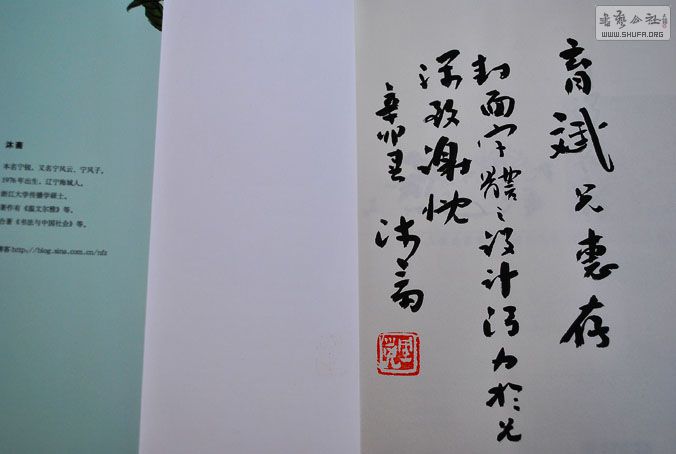 育斌兄惠存
封面字体之设计得力于兄
深致谢忱
辛卯夏 沐斋
沐斋
本名宁锐，又名宁风云、宁风子，
1976年出生，辽宁海城人。
浙江大学传播学硕士。
著作有《温文尔雅》等。
合著《书法与中国社会》等。
博客http://blog.sina.com.cn/nfz
书艺公社
WWW.SHUFA.ORG